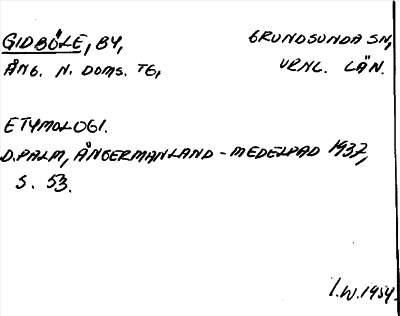 GIDBÖLE, BY, GRUNDSUNDA SN,
ÅNG. N. DOMS. TG, VRNL. LÄN.
ETYMOLOGI.
D. PALM, ÅNGERMANLAND - MEDELPAD 1937,
S. 53.
I.W. 1954.